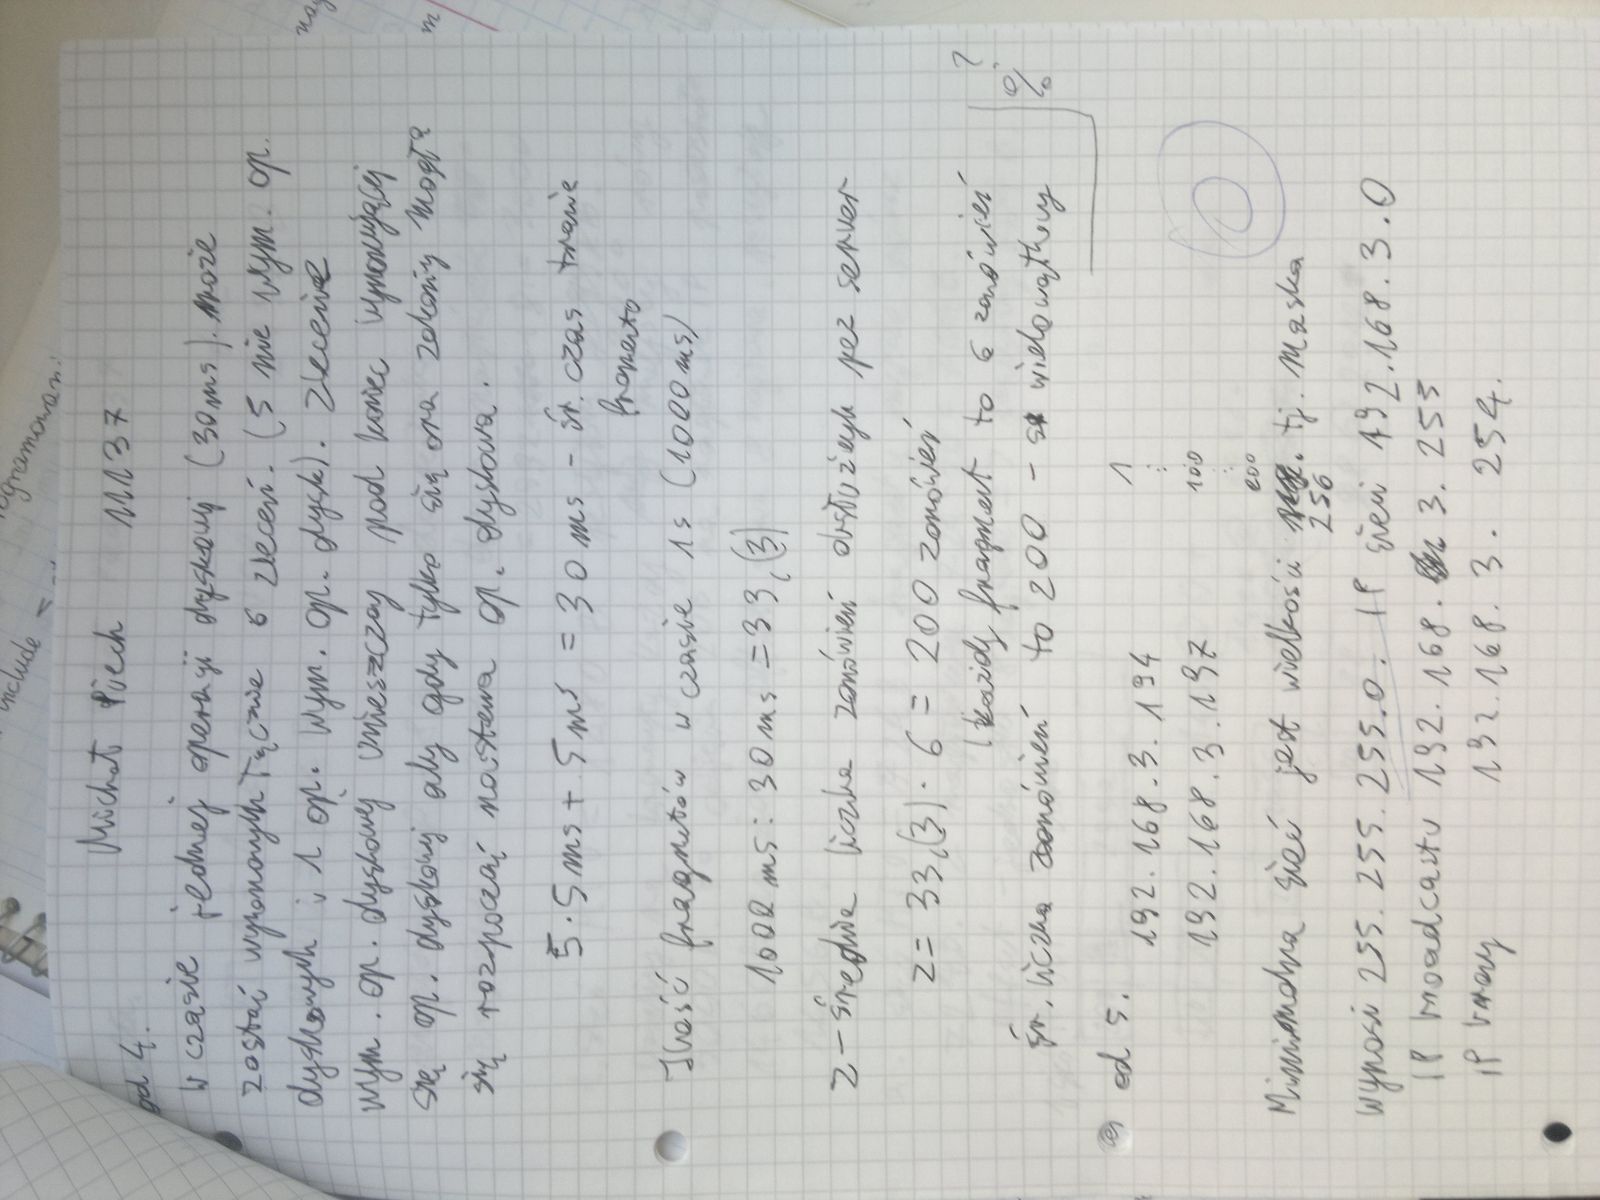 include <
ogramowani
Michał Piech 11137
od 4.
W czasie jednej operacji dyskowej (30ms). może
zostać wykonanych łącznie 6 zleceń. (5 nie wym. op.
dyskowych i 1 op. wym. op. dysk). Zlecenie
wym. op. dyskowej umieszczay pod koniec wykonującej
się op. dyskowej aby gdy tylko się ona zakończy mogła
się rozpocząć nastewa op. dyskowa.
5·5ms + 5ms = 30ms - śr. czas trwanie
fragmento
Ilość fragmetów w czasie 1s (1000ms)
1000 ms : 30 ms = 33,(3)
z - średnia liczba zamówień obsłużych pez serwer
z = 33,(3) · 6 = 200 zamówień
każdy fragment to 6 zamówień
śr. liczba zamówień to 200 - wielowątkowy
?
%
od 5.
192.168.3.194
192.168.3.197
1
:
100
:
200
Minimalna sieć jest wielkości tj. Maska
256
wynosi 255.255.255.0. IP sieci 192.168.3.0
IP broadcastu 192.168. 3. 255
IP bramy 192.168.3. 254.
0